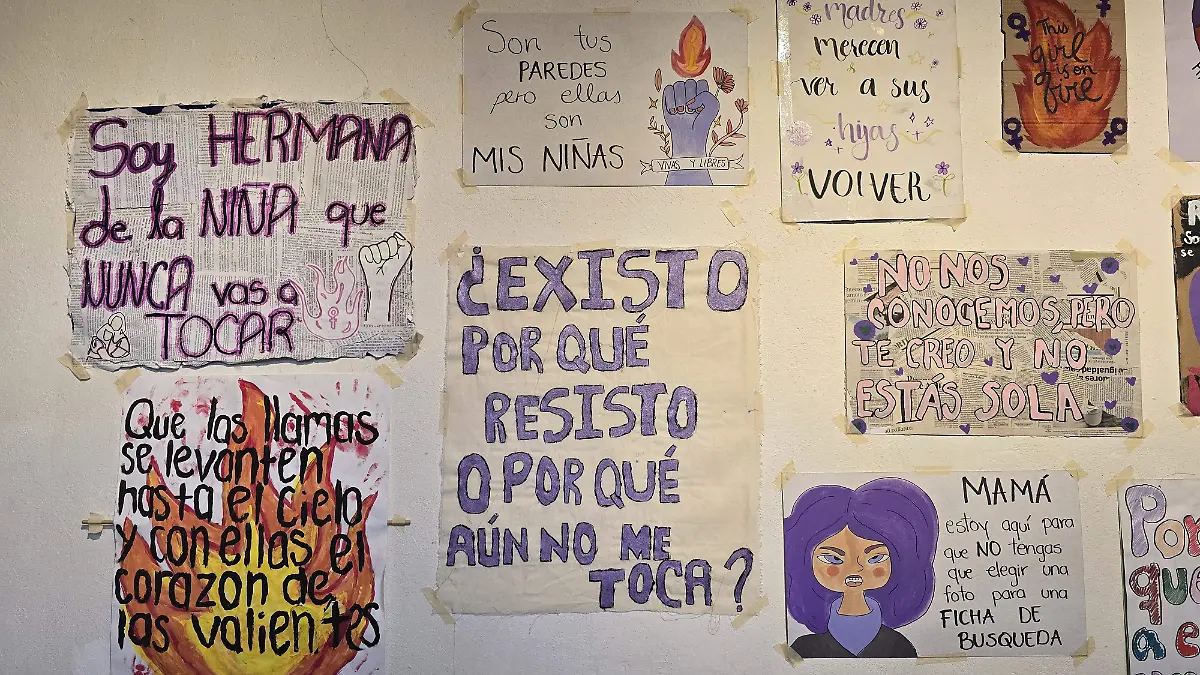 Soy HERMANA
de la NIÑA que
NUNCA vas a
TOCAR
Son tus
PAREDES
pero ellas
son
MIS NIÑAS
VIVAS Y LIBRES
madres
merecen
ver a sus
hijas
VOLVER
This
girl
is on
fire
Que las llamas
se levanten
hasta el cielo
y con ellas el
corazon de
las valientes
¿EXISTO
POR QUÉ
RESISTO
O POR QUÉ
AÚN NO ME
TOCA?
NO NOS
CONOCEMOS, PERO
TE CREO Y NO
ESTÁS SOLA
MAMÁ
estoy aquí para
que NO tengas
que elegir una
foto para una
FICHA DE
BUSQUEDA
So
se
Por
que
a e